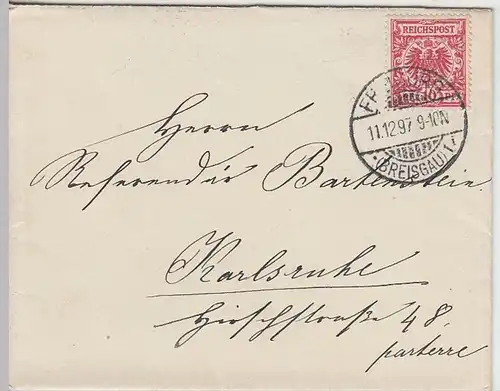 REICHSPOST
10 PF
FREIBURG
11.12.97 9-10N
*(BREISGAU)1.*
Herrn
Referendär Bartenstein
Karlsruhe
Hirschstraße 48.
parterre